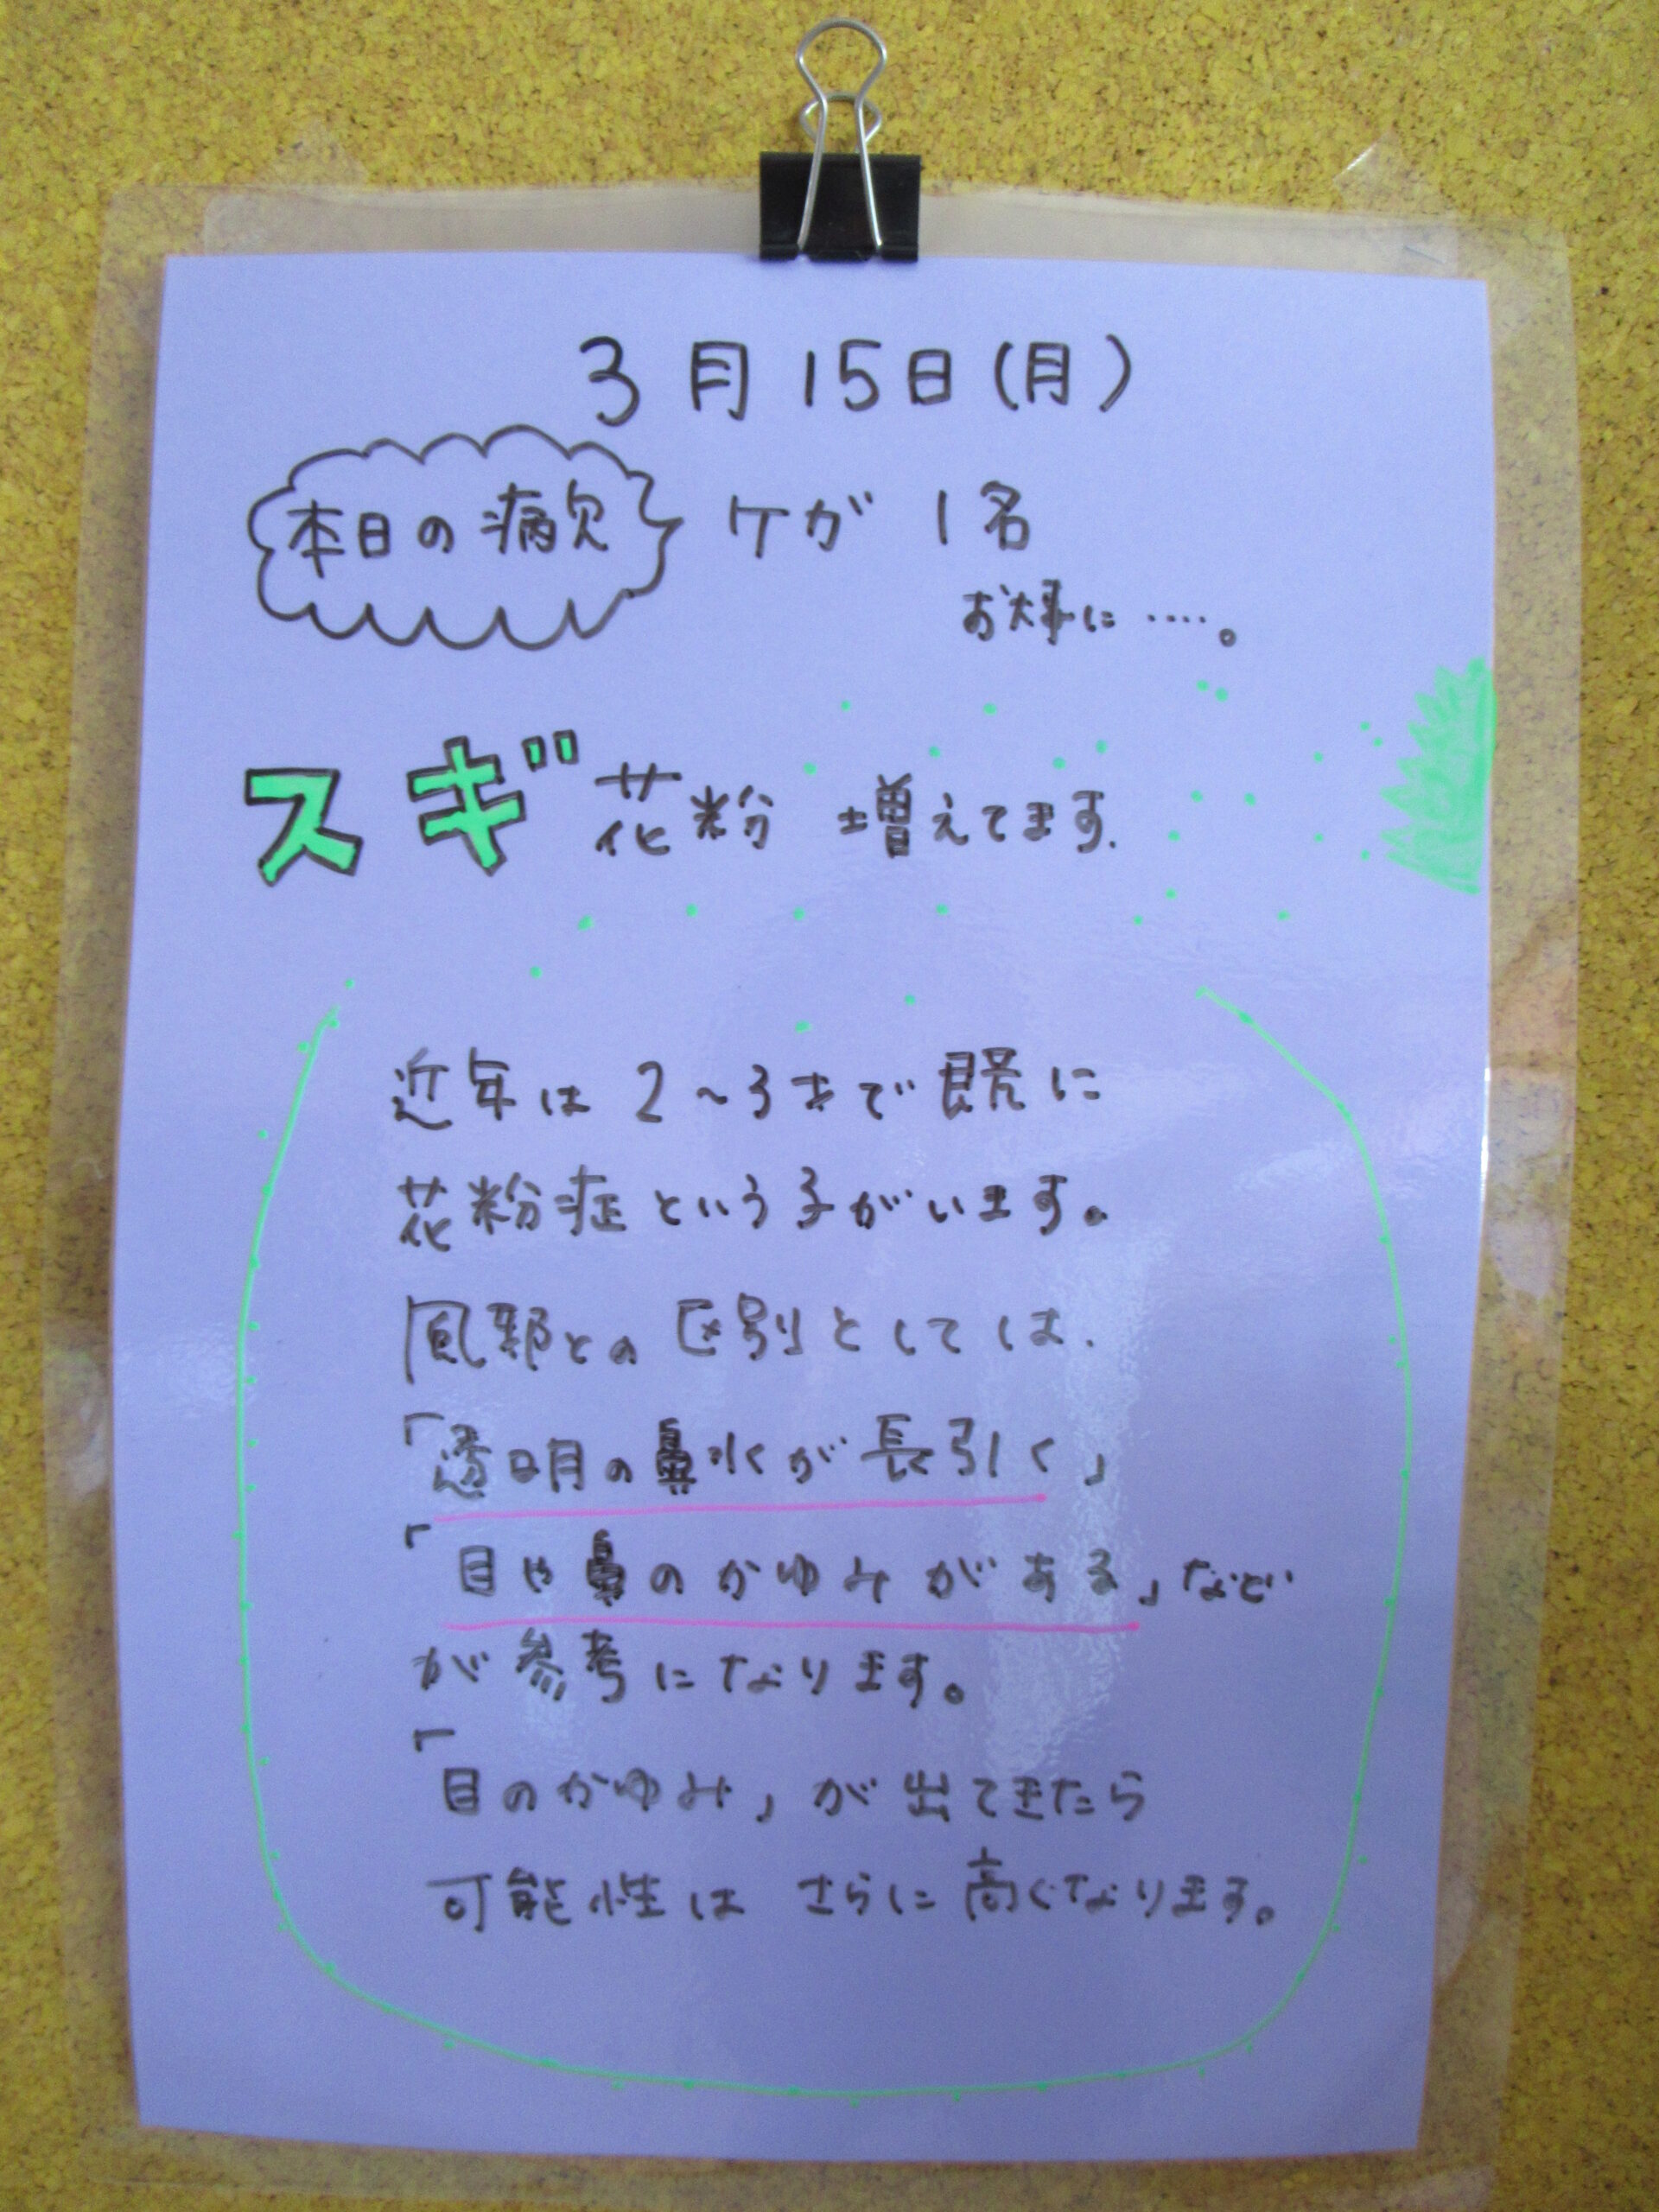 3月15日(月)
本日の病欠 ケガ 1名
お大事に・・・・。
スギ花粉 増えてます.
近年は 2~3才で 既に
花粉症という子がいます。
風邪との区別としては、
「透明の鼻水が長引く」
「目や鼻のかゆみがある」など
が参考になります。
「目のかゆみ」が出てきたら
可能性は さらに高くなります。